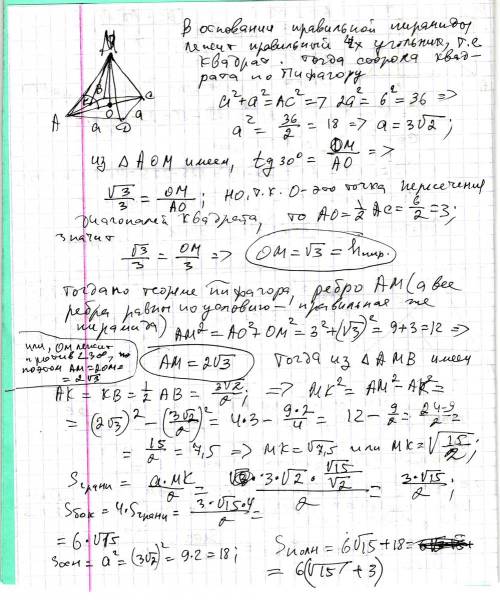 В основании правильной пирамиды
лежит правильный 4х угольник, т.е
квадрат. Тогда сторона квад-
рата по Пифагору
a² + a² = AC² => 2a² = 6² = 36 =>
a² = 36/2 = 18 => a = 3√2;
M
B
K
O
C
A
a
D
a
из △ AOM имеем, tg 30° = OM/AO =>
√3/3 = OM/AO; но, т.к. O - это точка пересечения
диагоналей квадрата, то AO = 1/2 AC = 6/2 = 3;
значит
√3/3 = OM/3 => OM = √3 = hпир.
Тогда по теореме пифагора, ребро AM (а все
ребра равны по условию - правильная же
пирамида) AM² = AO² + OM² = 3² + (√3)² = 9 + 3 = 12 =>
или, OM лежит
против ∠30°, по
этому AM = 2OM =
= 2√3
AM = 2√3
Тогда из △ AMB имеем
AK = KB = 1/2 AB = 3√2/2; => MK² = AM² - AK² =
= (2√3)² - (3√2/2)² = 4·3 - 9·2/4 = 12 - 9/2 = 24-9/2 =
= 15/2 = 7,5 => MK = √7,5 или MK = √15/2;
Sграни = a·MK/2 = 3·√2·√15/√2/2 = 3·√15/2;
Sбок = 4·Sграни = 3·√15·4/2 =
= 6·√15
Sосн = a² = (3√2)² = 9·2 = 18;
Sполн = 6√15 + 18 =
= 6(√15 + 3)